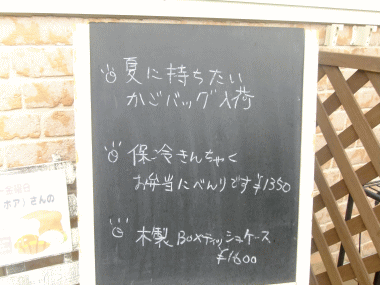 夏に持ちたい
かごバッグ入荷
保冷きんちゃく
お弁当にべんりです ¥1350
木製 BOXティッシュケース
¥1600
ホア)さんの